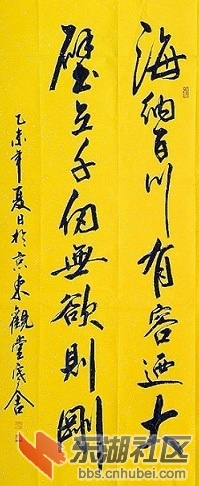 海纳百川有容迺大
壁立千仞無欲則剛
乙未年夏日於京東觀堂寓舍
东湖社区
bbs.cnhubei.com